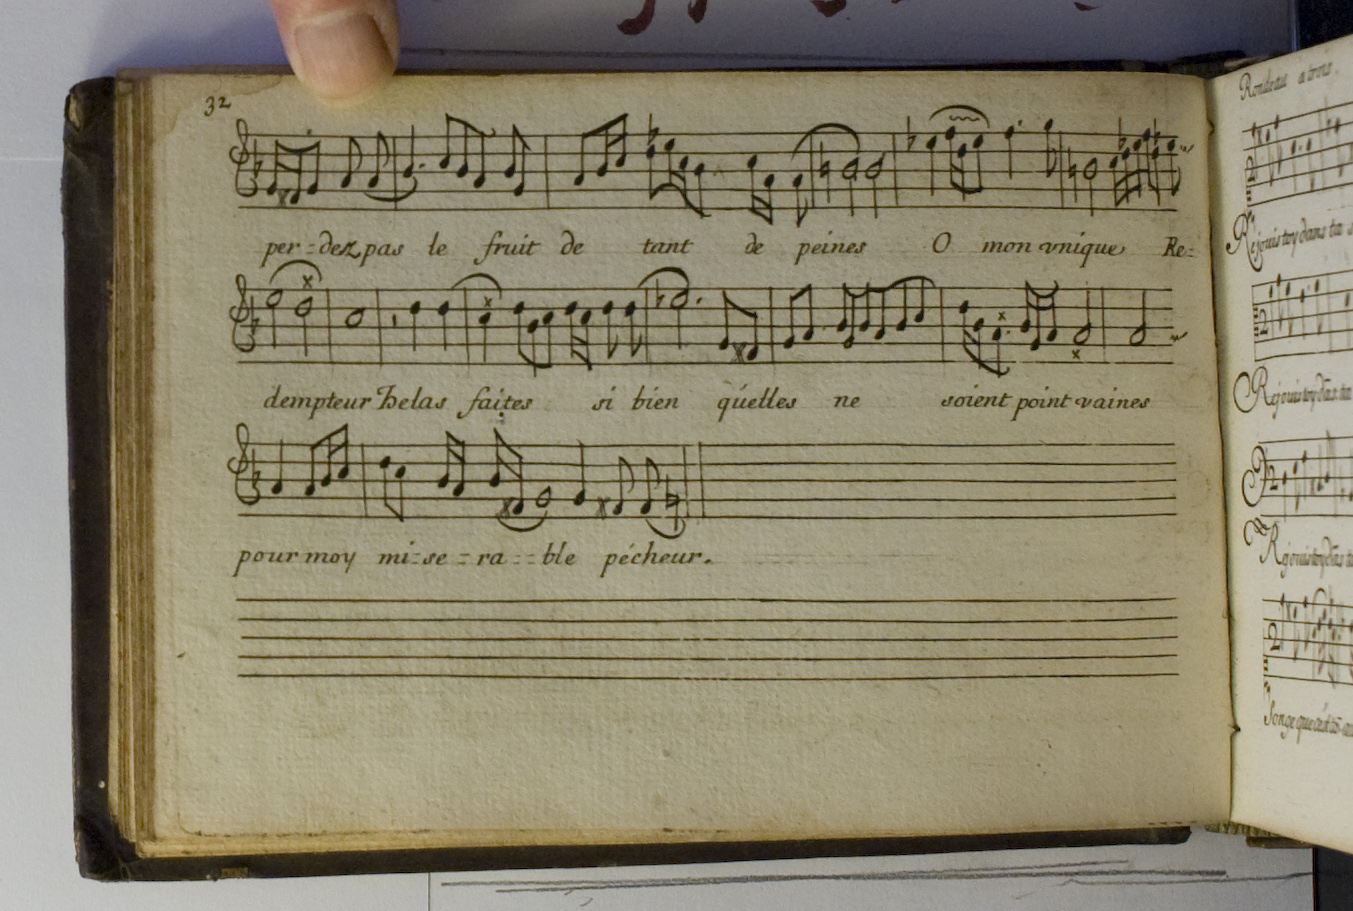 32
per-dez pas le fruit de tant de peines O mon vnique Re-
dempteur helas faites si bien qu'elles ne soient point vaines
pour moy mi-se-ra--ble pécheur.
Rondeau a trois.
Rejouis toy dans ta
Rejouis toy
Rejouis toy
Songe que